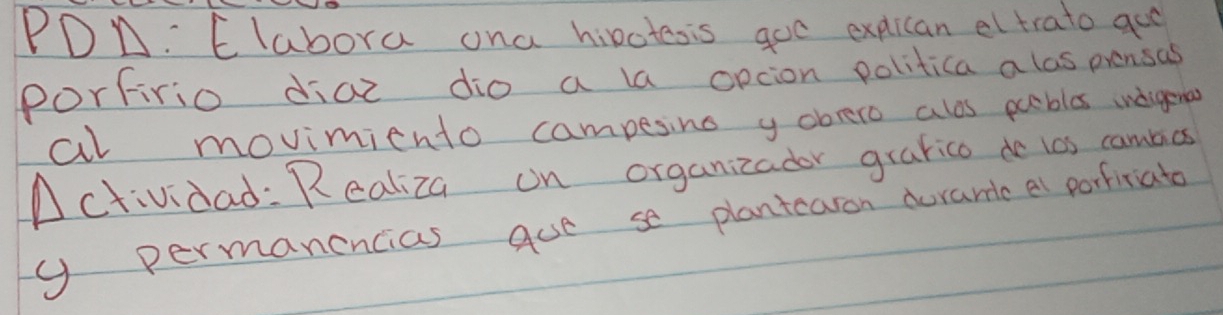 PDA: Elabora una hipotesis que explican el trato que
porfirio diaz dio a la opcion politica a las prensas
al movimiento campesino y obrero alos pueblos indigenas
Actividad: Realiza un organizador grafico de los cambios
y permanencias que se plantearon durante el porfiriato